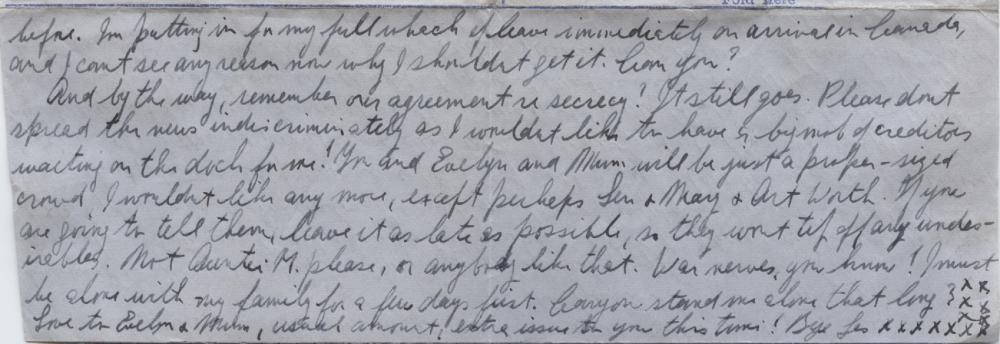 Fold Here
before. Im putting in for my full whack of leave immediately on arrival in Canada,
and I cant see any reason now why I shouldnt get it. Can you?
And by the way, remember our agreement re secrecy! It still goes. Please dont
spread the news indiscriminately as I wouldnt like to have a big mob of creditors
waiting on the dock for me! You and Evelyn and Mum will be just a proper-sized
crowd I wouldnt like any more, except perhaps Len & Mary & Art Worth. If you
are going to tell them, leave it as late as possible, so they wont tip off any undes-
irables. Not Auntie M. please, or anybody like that. War nerves, you know! I must
be alone with my family for a few days first. Can you stand me alone that long? x x
Love to Evelyn & Mum, usual amount, extra issue to you this time! Bye Les x x x x x x x x